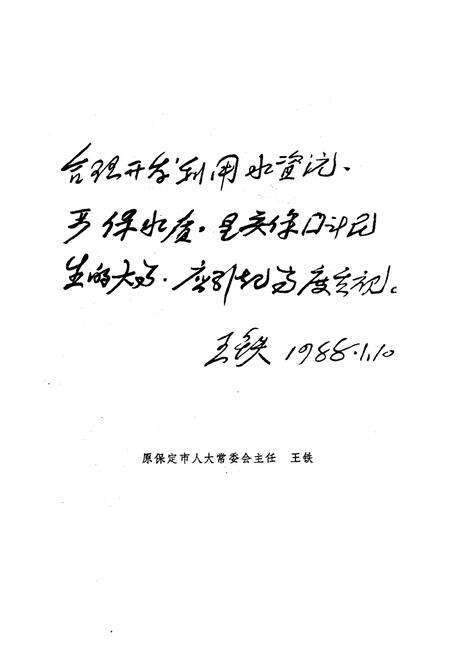 合理开发利用水資沅、
严保水质。是关係国计民
生的大事．应引起高度重视。
王铁 1988.1.10
原保定市人大常委会主任 王铁